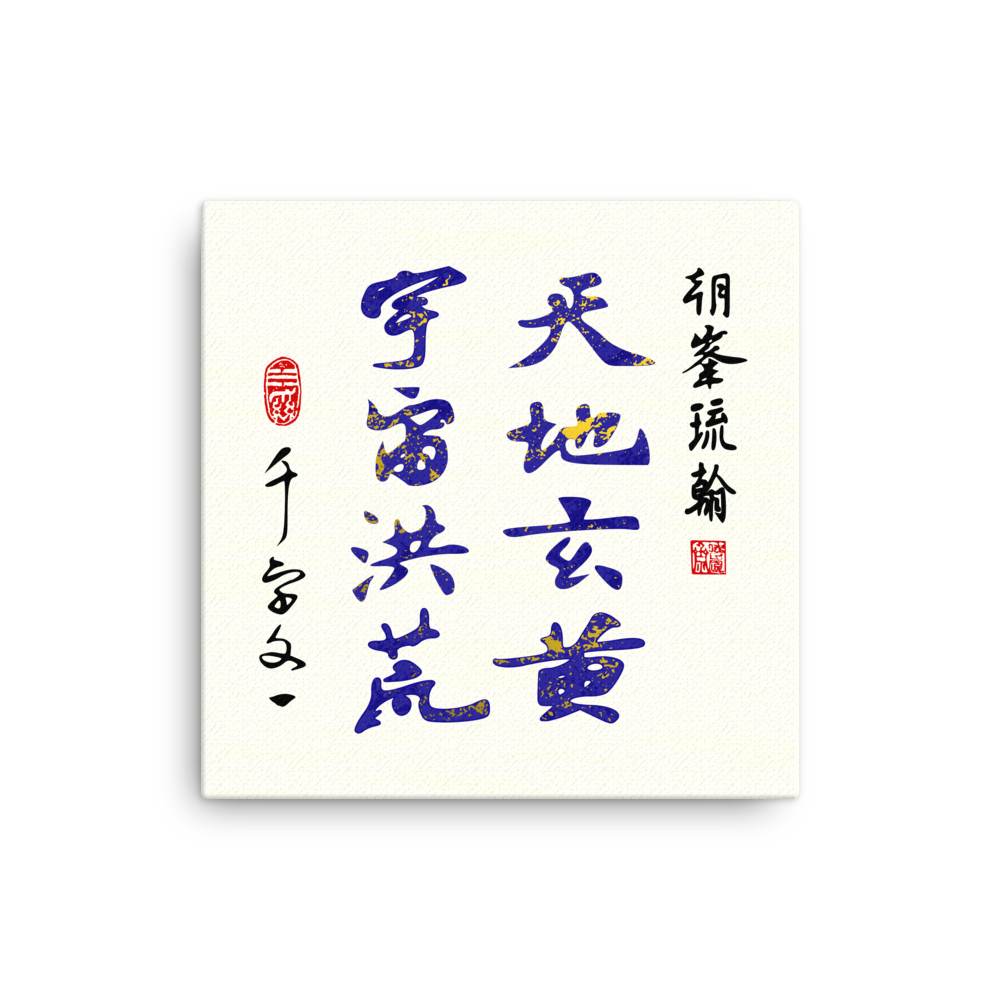 朝峯琉翰
天地玄黃
宇宙洪荒
千字文一